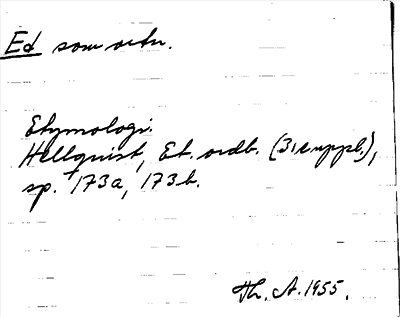 Ed som ortn.
Etymologi.
Hellquist, Et. ordb. (3:e uppl.),
sp. 173a, 173b.
Th. A. 1955.